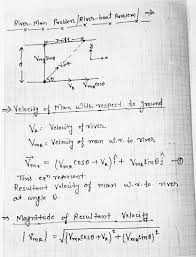 River-Man Problem/River-boat Problem/
drift
x
y
d
Vmr
Vmr sinθ
θ
VR
Vmr cosθ
⇒ Velocity of Man with respect to ground
VR = Velocity of river
VmR = Velocity of man w.r. to river
V⃗m = (VmR cosθ + VR) î + VmR sinθ ĵ —①
This eqⁿ represent
Resultant velocity of man w.r. to river
at angle θ
⇒ Magnitude of Resultant Velocity
|VmR| = √(VmR cosθ + VR)² + (VmR sinθ)²